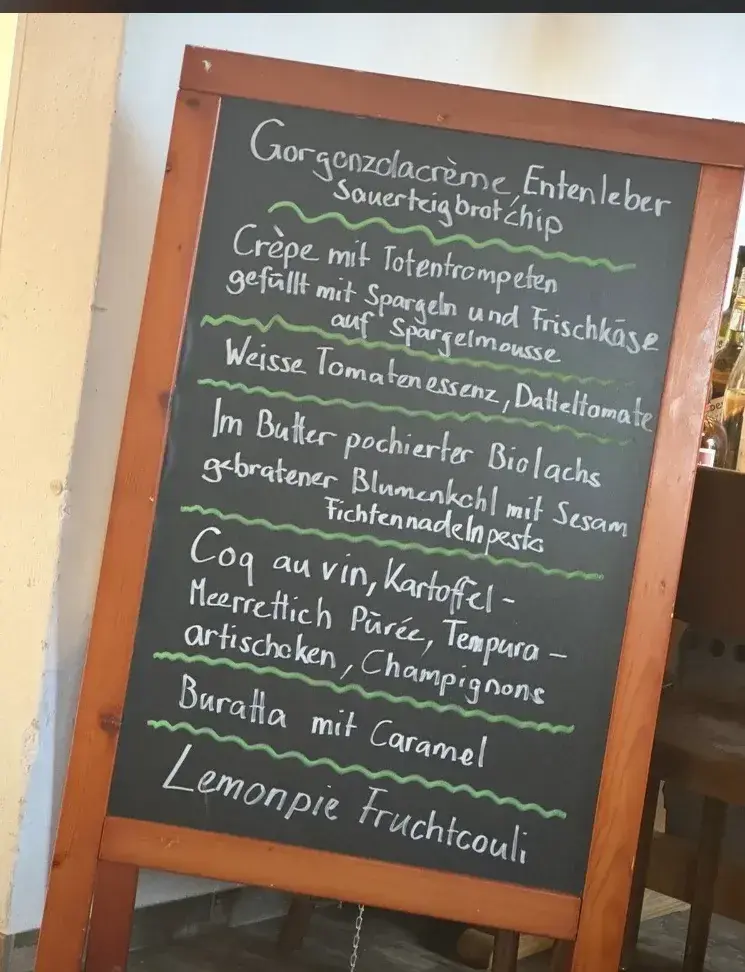 Gorgonzolacrème, Entenleber
Sauerteigbrotchip
Crèpe mit Totentrompeten
gefüllt mit Spargeln und Frischkäse
auf Spargelmousse
Weisse Tomatenessenz, Datteltomate
Im Butter pochierter Biolachs
gebratener Blumenkohl mit Sesam
Fichtennadelnpesto
Coq au vin, Kartoffel-
Meerrettich Pürée, Tempura-
artischoken, Champignons
Buratta mit Caramel
Lemonpie Fruchtcouli